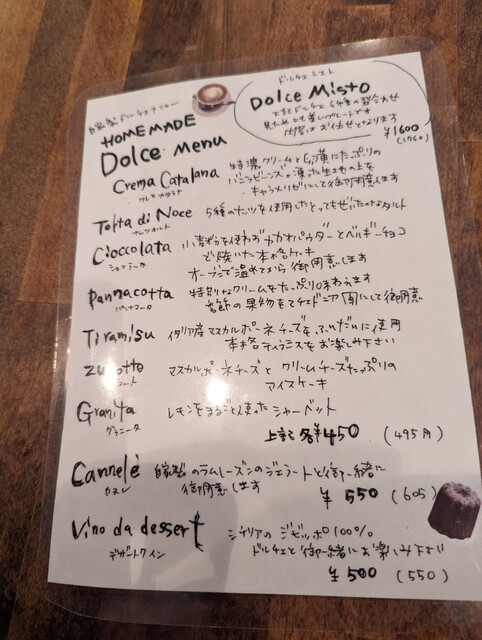 自家製ドルチェメニュー
HOMEMADE
Dolce Menu
ドルチェミスト
Dolce Misto
上記ドルチェ 6種の盛合わせ
見ためにも楽しいプレートです
内容はお任せとなります
¥1600
(1760)
Crema Catalana 特濃クリームと卵黄にたっぷりの
クレマカタラナ バニラビーンズ。凍った生地の上を
キャラメリゼにして御用意します
Torta di Noce 5種のナッツを使用したとってもぜいたくなタルト
ナッツタルト
Cioccolata 小麦粉を使わずカカオパウダーとベルギーチョコ
ショコラータ で焼いた本格ケーキ
オーブンで温めてから御用意します
Pannacotta 特別なクリームをたっぷり味わえます
パンナコッタ 季節の果物をマチェドニア風にして御用意
Tiramisu イタリア産マスカルポーネチーズをふんだんに使用
本格ティラミスをお楽しみ下さい
Zucotto マスカルポーネチーズとクリームチーズたっぷりの
アイスケーキ
Granita レモンをまるごと使ったシャーベット
グラニータ
上記各¥450 (495円)
Cannelè 自家製のラムレーズンのジェラートと御一緒に
カヌレ 御用意します
¥550 (605)
Vino da dessert シチリアのジビッボ100%
デザートワイン ドルチェと御一緒にお楽しみ下さい
¥500 (550)